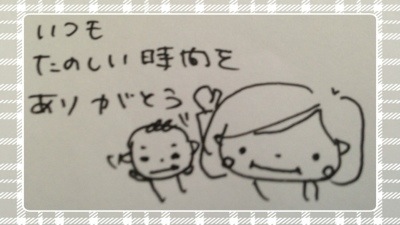 いつも
たのしい時間を
ありがとう